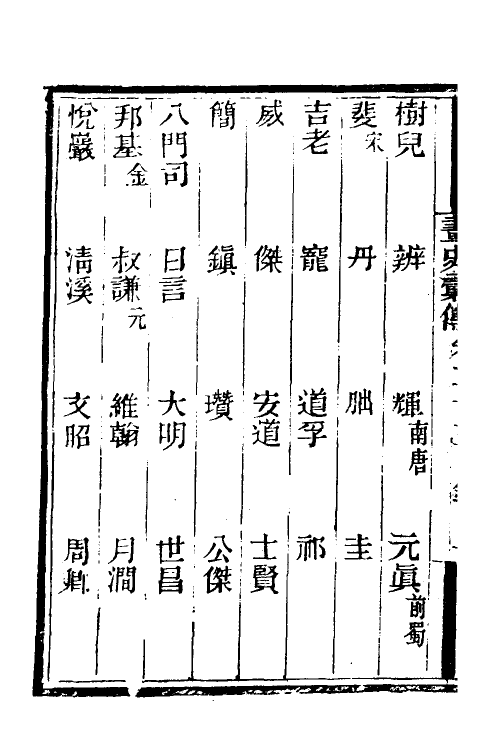 樹兒　辨　輝南唐　元眞前蜀
斐宋　丹　朏　圭
吉老　寵　道孚　祁
威　傑　安道　士賢
簡　鎭　瓚　公傑
八門司　日言　大明　世昌
邦基金　叔謙元　維翰　月澗
悅巖　淸溪　文昭　周卿
畫史彙傳